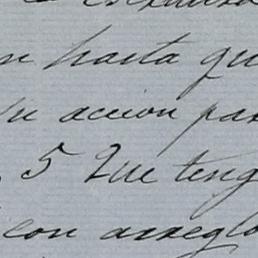 hasta qu
su accion pas
5 Que teng
con arreglo